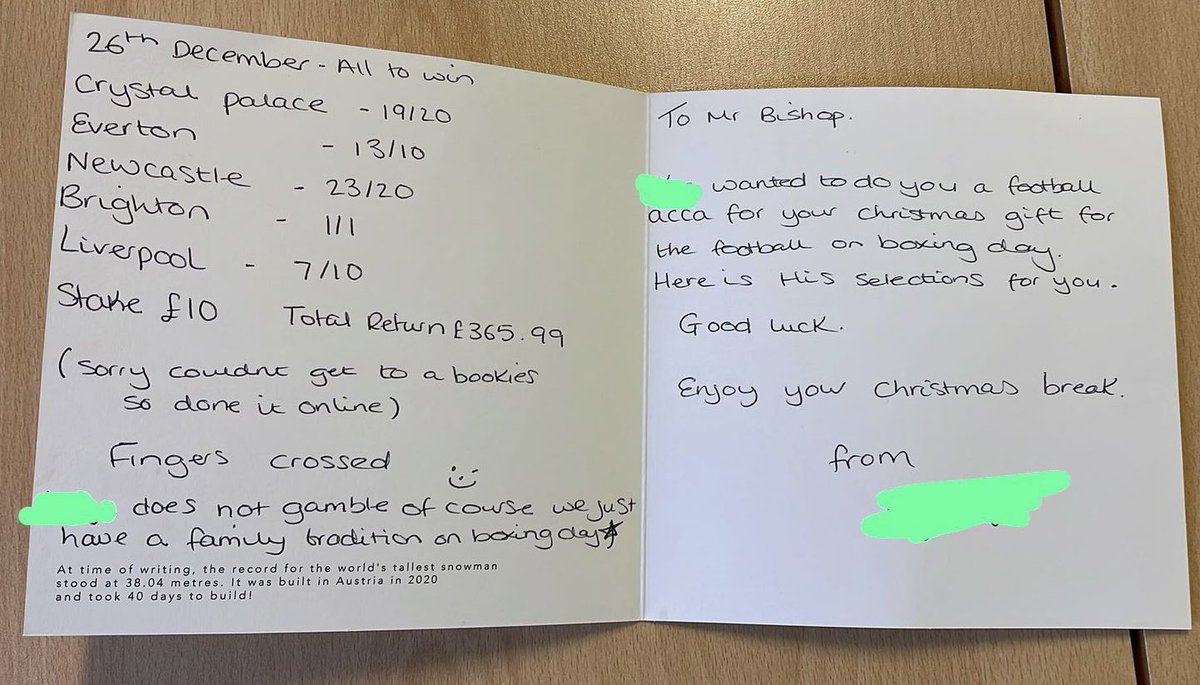 26th December - All to win
Crystal palace - 19/20
Everton - 13/10
Newcastle - 23/20
Brighton - 1/1
Liverpool - 7/10
Stake £10 Total Return £365.99
(Sorry couldnt get to a bookies
so done it online)
Fingers crossed
does not gamble of course we just
have a family tradition on boxing day
At time of writing, the record for the world's tallest snowman
stood at 38.04 metres. It was built in Austria in 2020
and took 40 days to build!
To Mr Bishop.
wanted to do you a football
acca for your Christmas gift for
the football on boxing day.
Here is His selections for you.
Good luck.
Enjoy your Christmas break.
from